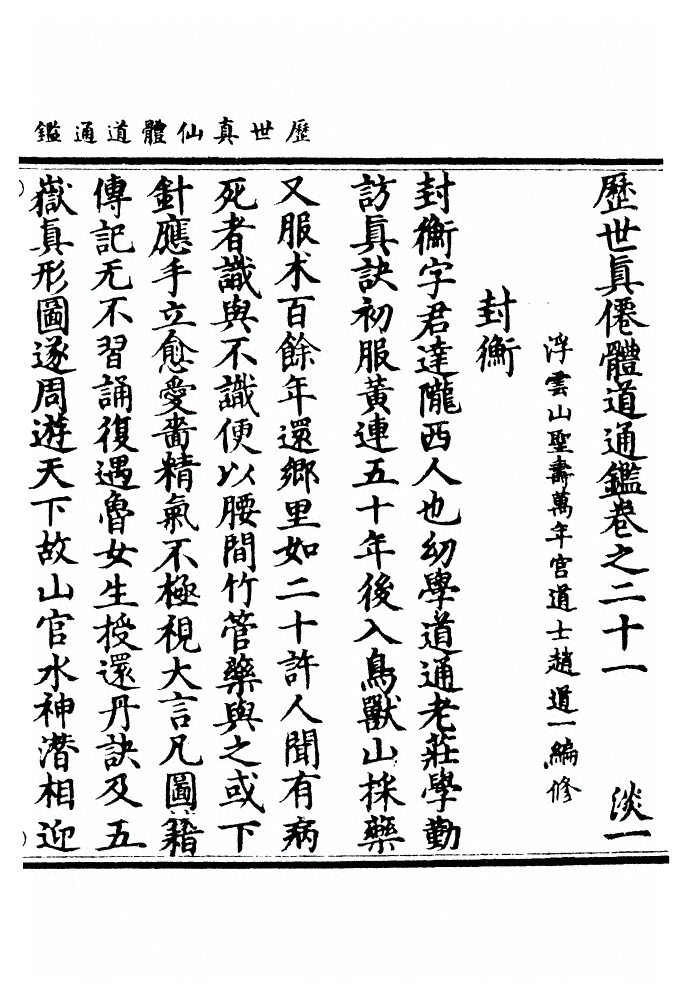 歷世真仙體道通鑑
歷世眞僊體道通鑑卷之二十一 淡一
浮雲山聖壽萬年宮道士趙道一編修
封衡
封衡字君達隴西人也幼學道通老莊學勤
訪眞訣初服黃連五十年後入鳥獸山採藥
又服朮百餘年還鄉里如二十許人聞有病
死者識與不識便以腰間竹管藥與之或下
針應手立愈愛嗇精氣不極視大言凡圖籍
傳記无不習誦復遇魯女生授還丹訣及五
嶽眞形圖遂周遊天下故山官水神潛相迎